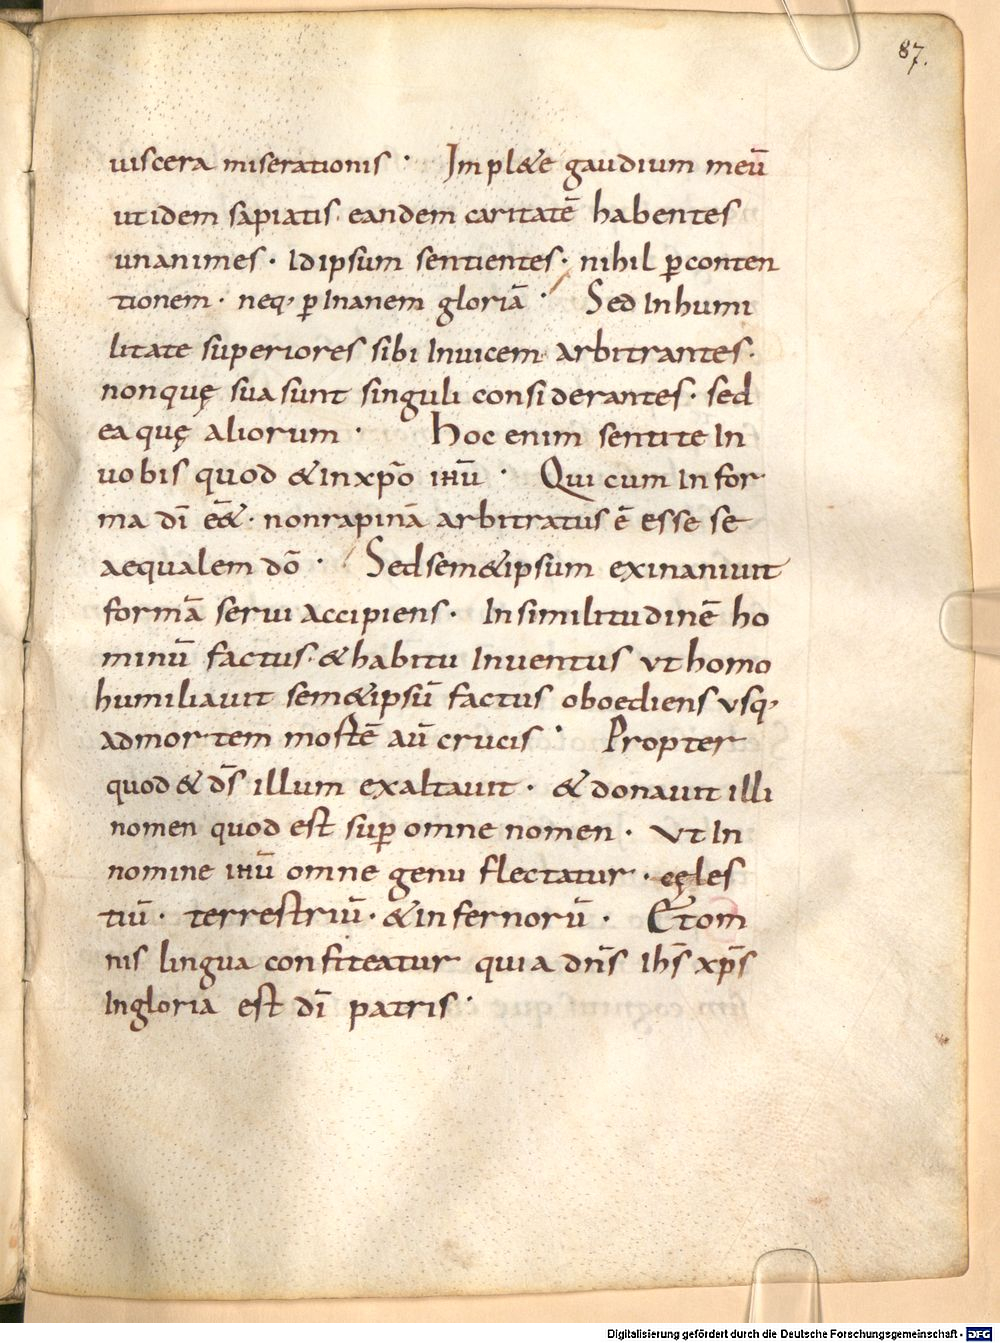 87.
uiscera miserationis · Impl&e gaudium meū
ut idem sapiatis· eandem caritatē habentes
unanimes · Idipsum sentientes · nihil ꝑconten
tionem · neq; ꝑ Inanem gloriā · Sed Inhumi
litate superiores sibi Inuicem arbitrantes ·
nonquę sua sunt singuli considerantes · sed
ea quę aliorum · hoc enim sentite In
uobis quod & in xp̄o ihū · Qui cum In for
ma dī eē& · non rapinā arbitratus ē esse se
aequalem dō · Sed sem&ipsum exinaniuit
formā serui accipiens · In similitudinē ho
minū factus · & habitu Inuentus ut homo
humiliauit sem&ipsū factus oboediens usq;
admortem mortē aū crucis · Propter
quod & ds̄ illum exaltauit · & donauit illi
nomen quod est suꝑ omne nomen · Ut In
nomine ihū omne genu flectatur · cęles
tiū · terrestriū · & infernorū · Et om
nis lingua confiteatur quia dn̄s ihs̄ xp̄s
In gloria est dī patris ·
Digitalisierung gefördert durch die Deutsche Forschungsgemeinschaft - DFG